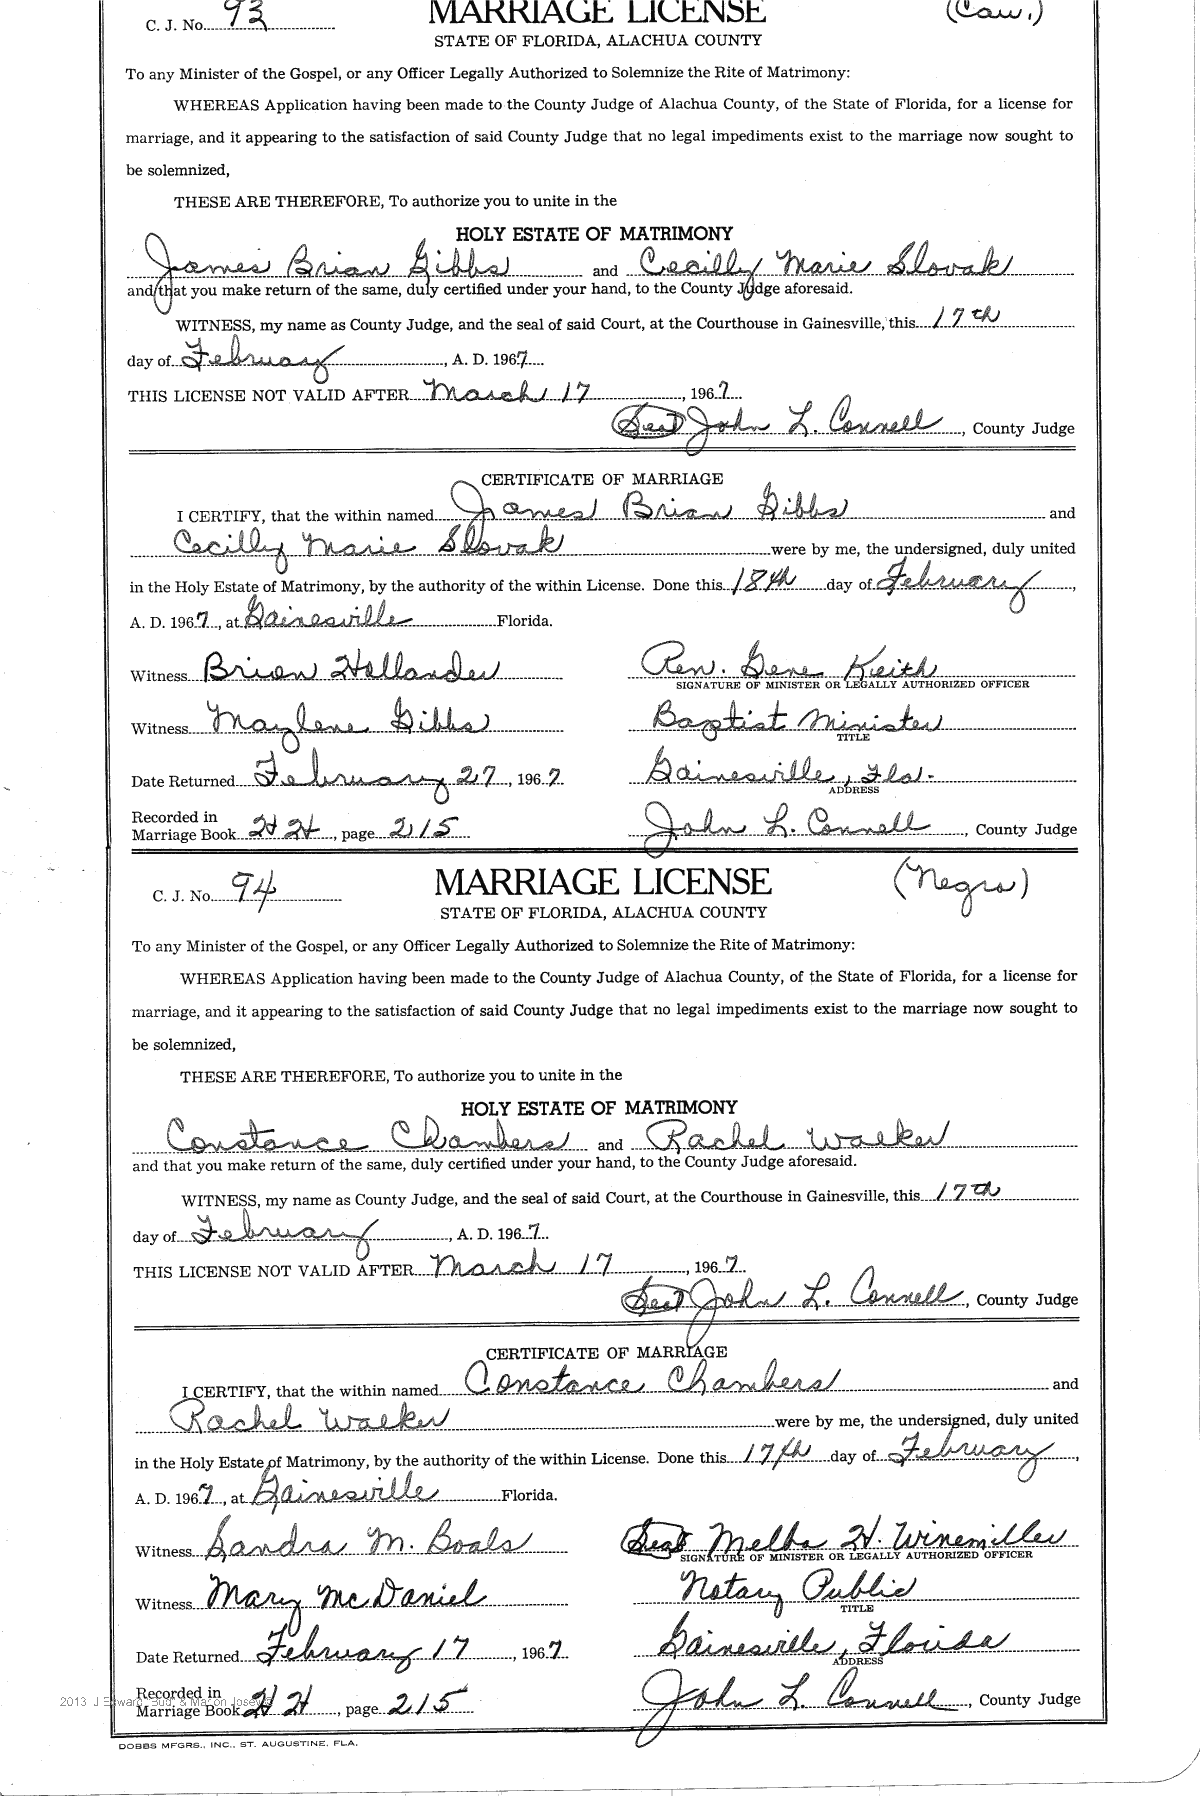 C. J. No. 93
MARRIAGE LICENSE
(Cau.)
STATE OF FLORIDA, ALACHUA COUNTY
To any Minister of the Gospel, or any Officer Legally Authorized to Solemnize the Rite of Matrimony:
WHEREAS Application having been made to the County Judge of Alachua County, of the State of Florida, for a license for
marriage, and it appearing to the satisfaction of said County Judge that no legal impediments exist to the marriage now sought to
be solemnized,
THESE ARE THEREFORE, To authorize you to unite in the
HOLY ESTATE OF MATRIMONY
James Brian Gibbs and Cecilly Marie Slovak
and that you make return of the same, duly certified under your hand, to the County Judge aforesaid.
WITNESS, my name as County Judge, and the seal of said Court, at the Courthouse in Gainesville, this 17th
day of February, A. D. 1967
THIS LICENSE NOT VALID AFTER March 17, 1967
(Seal) John L. Connell, County Judge
CERTIFICATE OF MARRIAGE
I CERTIFY, that the within named James Brian Gibbs and
Cecilly Marie Slovak were by me, the undersigned, duly united
in the Holy Estate of Matrimony, by the authority of the within License. Done this 18th day of February,
A. D. 1967, at Gainesville Florida.
Witness Brian Hollander Rev. Gene Keith
SIGNATURE OF MINISTER OR LEGALLY AUTHORIZED OFFICER
Witness Maylene Gibbs Baptist Minister
TITLE
Date Returned February 27, 1967 Gainesville, Fla.
ADDRESS
Recorded in
Marriage Book HH, page 215 John L. Connell, County Judge
C. J. No. 94
MARRIAGE LICENSE
(Negro)
STATE OF FLORIDA, ALACHUA COUNTY
To any Minister of the Gospel, or any Officer Legally Authorized to Solemnize the Rite of Matrimony:
WHEREAS Application having been made to the County Judge of Alachua County, of the State of Florida, for a license for
marriage, and it appearing to the satisfaction of said County Judge that no legal impediments exist to the marriage now sought to
be solemnized,
THESE ARE THEREFORE, To authorize you to unite in the
HOLY ESTATE OF MATRIMONY
Constance Chambers and Rachel Walker
and that you make return of the same, duly certified under your hand, to the County Judge aforesaid.
WITNESS, my name as County Judge, and the seal of said Court, at the Courthouse in Gainesville, this 17th
day of February, A. D. 1967
THIS LICENSE NOT VALID AFTER March 17, 1967
(Seal) John L. Connell, County Judge
CERTIFICATE OF MARRIAGE
I CERTIFY, that the within named Constance Chambers and
Rachel Walker were by me, the undersigned, duly united
in the Holy Estate of Matrimony, by the authority of the within License. Done this 17th day of February,
A. D. 1967, at Gainesville Florida.
Witness Sandra M. Boals (Seal) Melba H. Winemiller
SIGNATURE OF MINISTER OR LEGALLY AUTHORIZED OFFICER
Witness Mary McDaniel Notary Public
TITLE
Date Returned February 17, 1967 Gainesville, Florida
ADDRESS
Recorded in
Marriage Book HH, page 215 John L. Connell, County Judge
DOBBS MFGRS., INC., ST. AUGUSTINE, FLA.